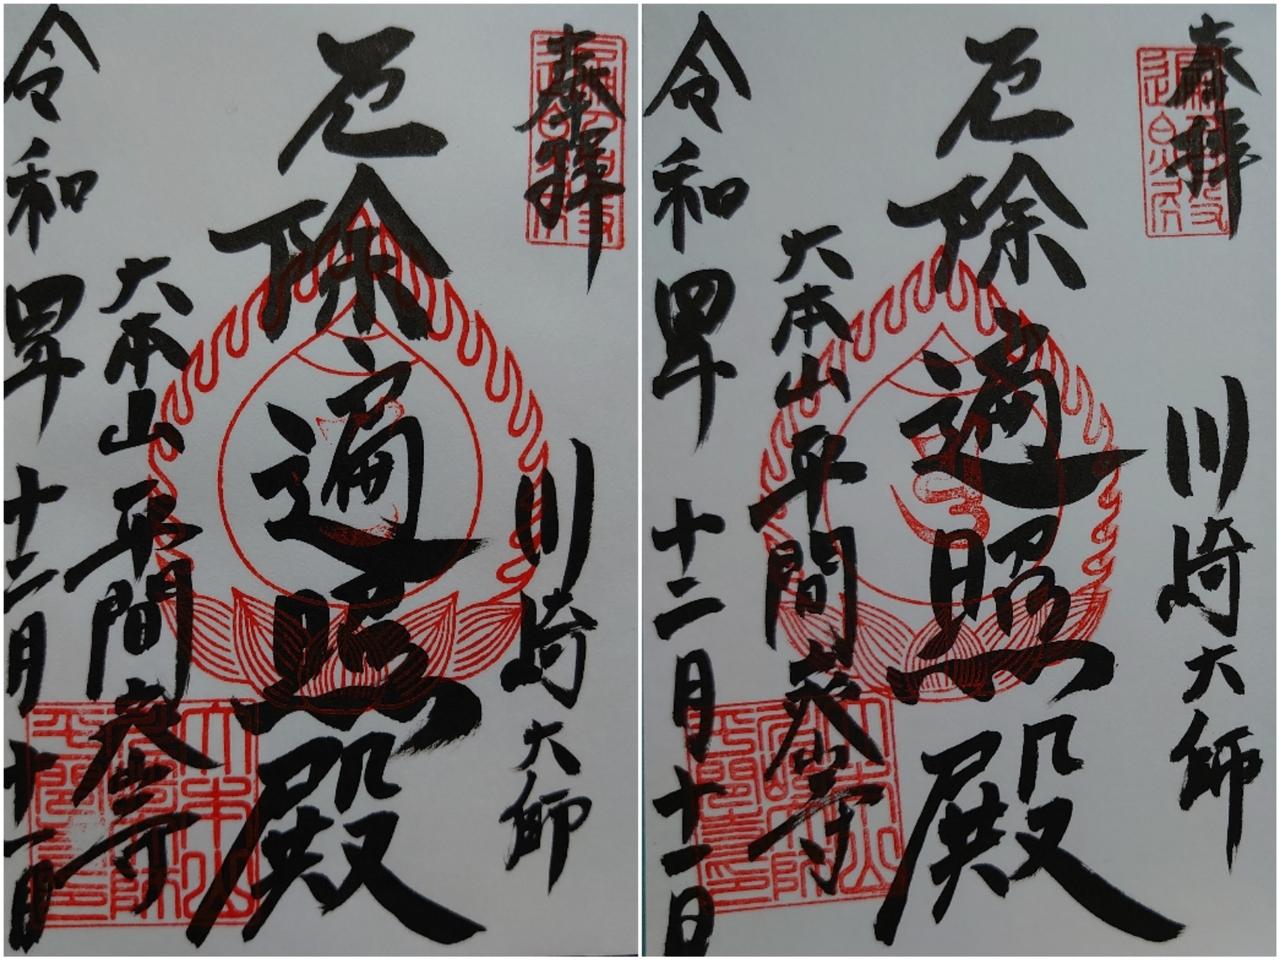 奉拝
川崎大師
厄除遍照殿
大本山平間寺
令和四年十二月十一日
奉拝
川崎大師
厄除遍照殿
大本山平間寺
令和四年十二月十一日